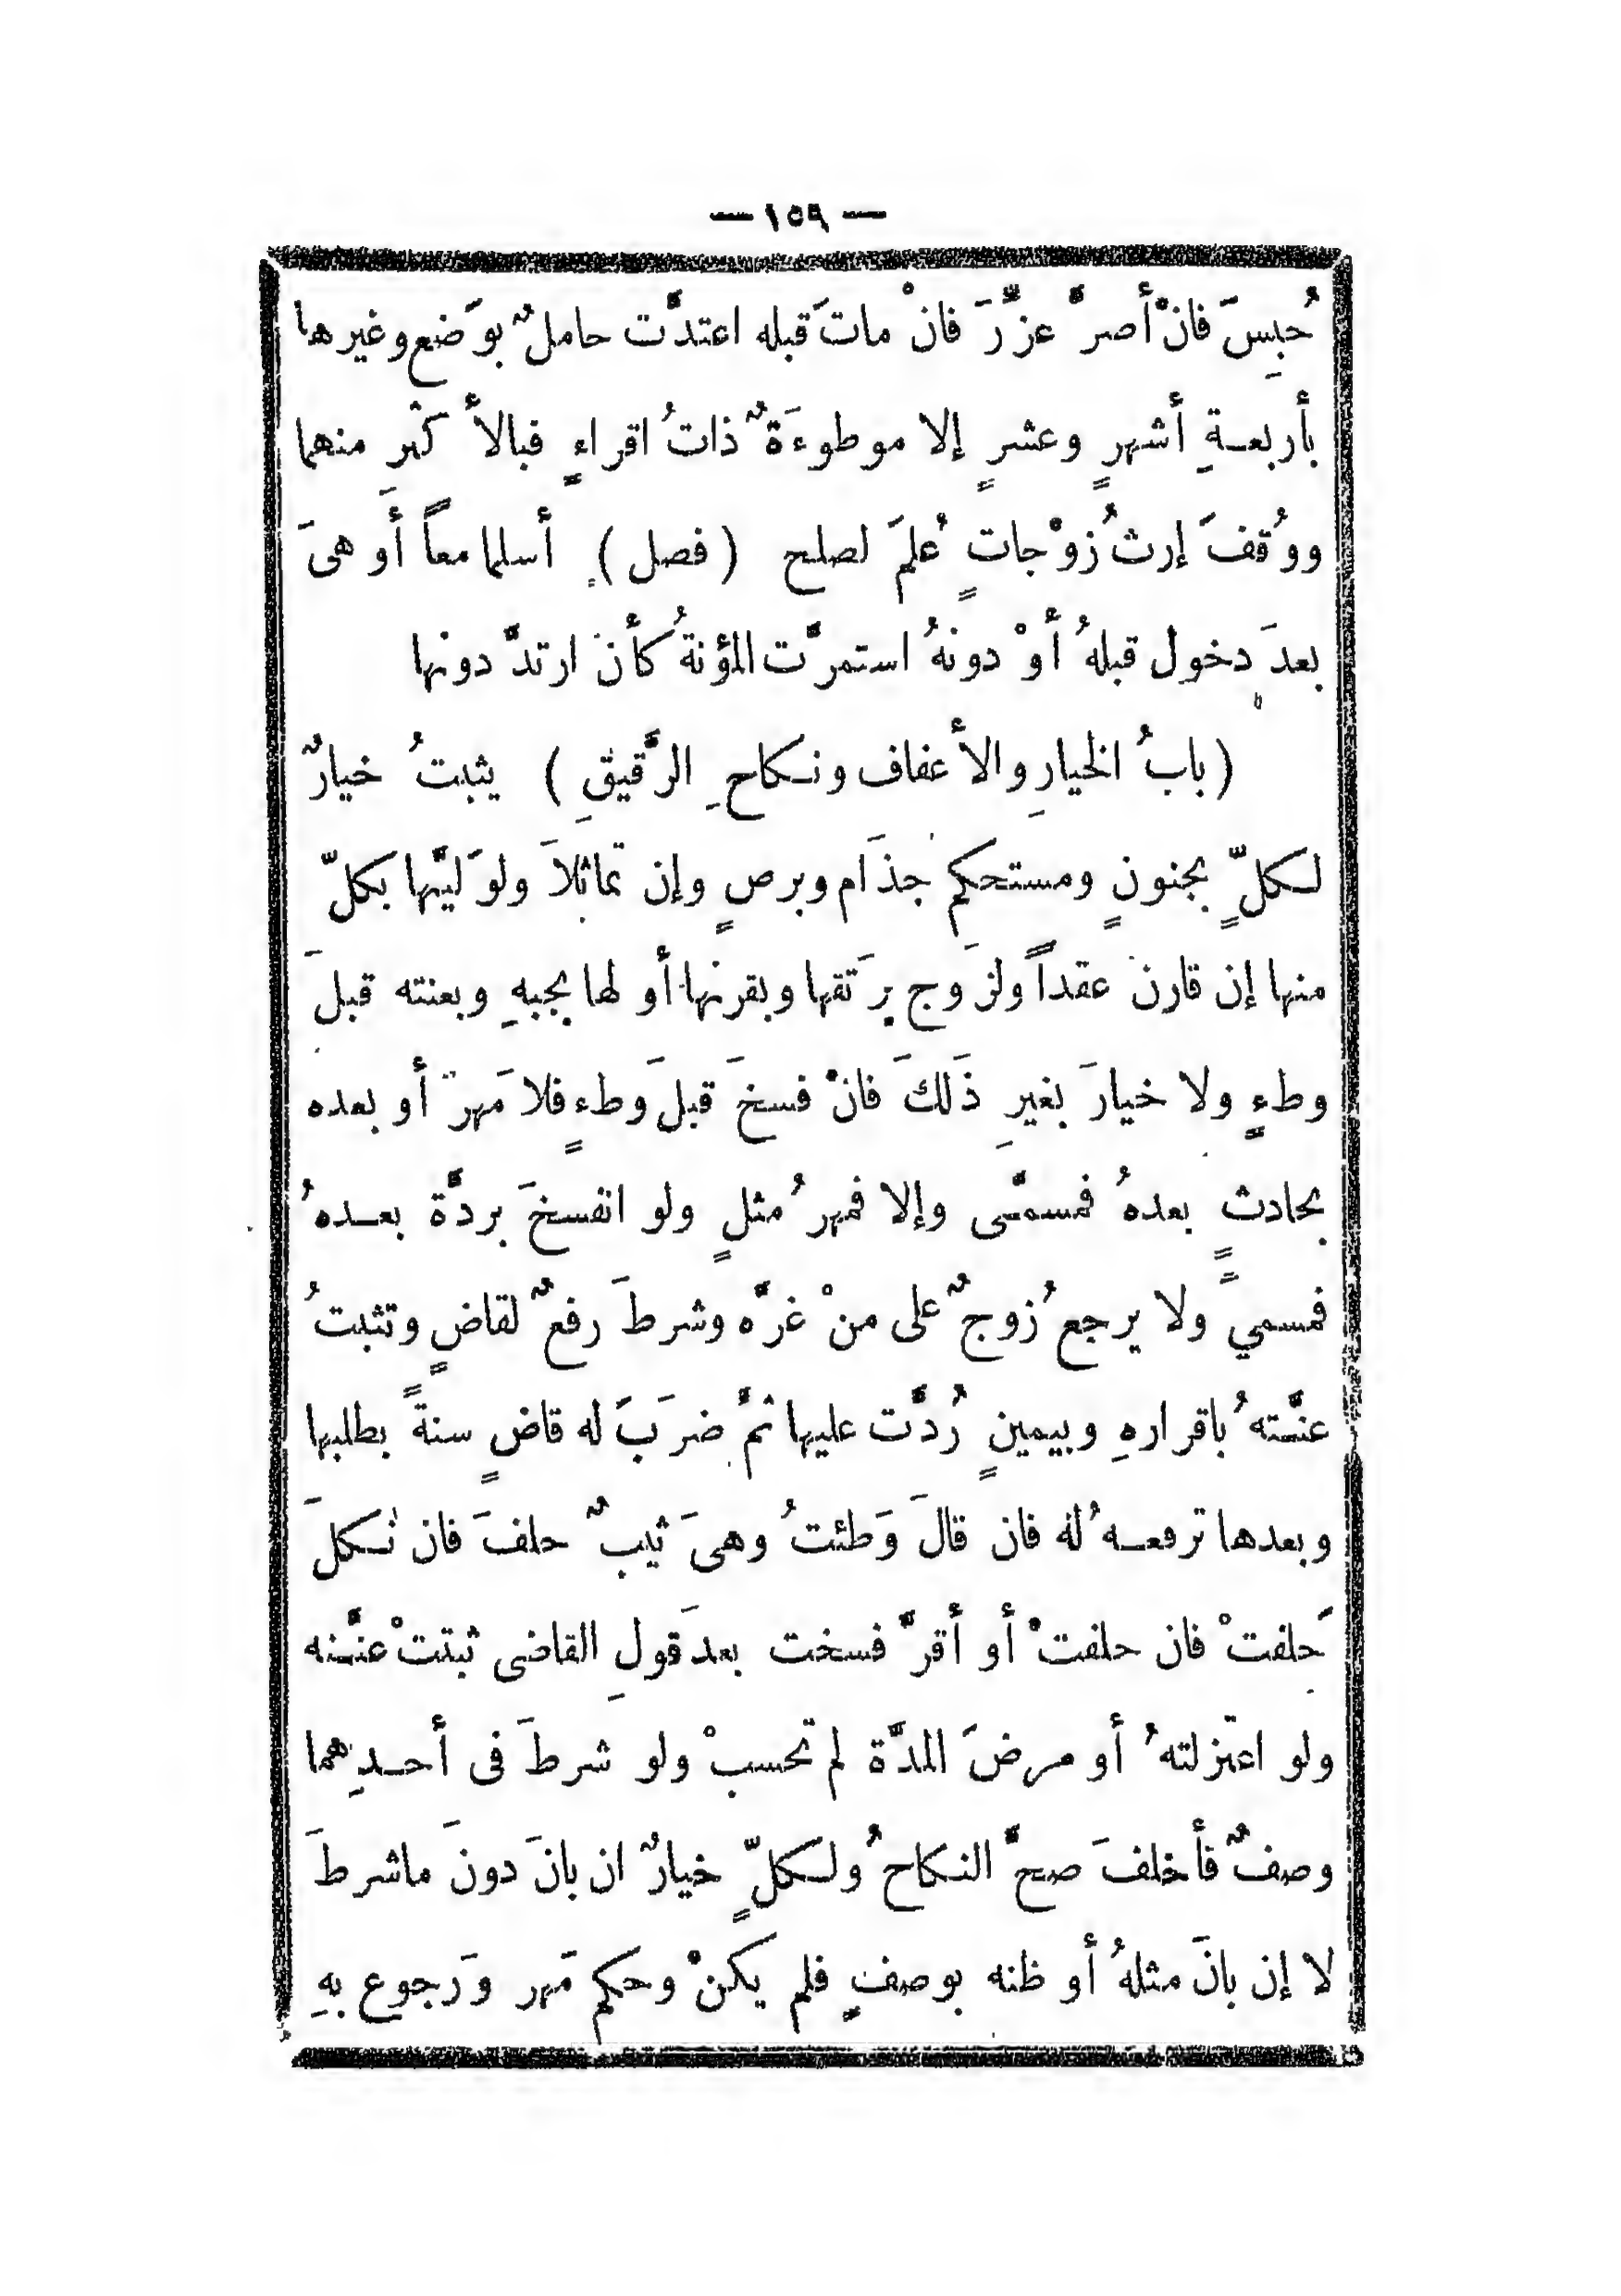 — ١٥٩ —
حُبِسَ فانْ أصرَّ عزِّرَ فانْ ماتَ قبله اعتدَّت حاملٌ بوَضع وغيرها
بأربعـةِ أشهرٍ وعشرٍ إلا موطوءَةٌ ذاتُ اقراءٍ فبالأَ كثر منهما
ووُقفَ إرثُ زوْجاتٍ عُلمَ لصلح ( فصل ) أسلما معاً أَو هىَ
بعدَ دخول قبلهُ أوْ دونهُ استمرَّت المؤنةُ كأن ارتدَّ دونها
( بابُ الخيارِ والأعفاف ونـكاحِ الرَّقيقِ ) يثبتُ خيارٌ
لـكلٍّ بجنونٍ ومستحكم جذَام وبرصٍ وإن تماثلاَ ولوَليِّها بكلّ
منها إن قارن عقداً ولزَوج برَتقها وبقرنها أو لها بجبهِ وبعنته قبلَ
وطءٍ ولا خيارَ بغيرِ ذَلكَ فانْ فسخَ قبلَ وَطءٍ فلا مَهر أو بعده
بحادثٍ بعدهُ فمسمًّى وإلا فمهرُ مثلٍ ولو انفسخَ بردَّة بعـدهُ
فمسميً ولا يرجعُ زوجٌ على منْ غرَّه وشرطَ رفعٌ لقاضٍ وتثبتُ
عنَّتهُ باقرارهِ وبيمينٍ رُدَّت عليها ثمَّ ضرَبَ له قاضٍ سنةً بطلبها
وبعدها ترفعـهُ لهُ فان قالَ وَطئتُ وهىَ ثيبٌ حلفَ فان نـكلَ
حَلفتْ فان حلفتْ أو أقرَّ فسخت بعدَ قولِ القاضى ثبتتْ عنَّنه
ولو اعتزلتهُ أو مرضَ المدَّة لم تحسبْ ولو شرطَ فى أحـدِهما
وصفٌ فأخلفَ صحَّ النكاحُ ولـكلٍّ خيارٌ ان بانَ دونَ ماشرطَ
لا إن بانَ مثلهُ أو ظنه بوصفٍ فلم يكنْ وحكم مَهر وَرجوع بهِ